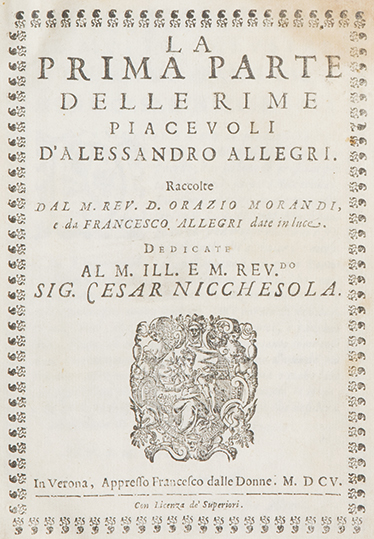 LA
PRIMA PARTE
DELLE RIME
PIACEVOLI
D'ALESSANDRO ALLEGRI.
Raccolte
DAL M. REV. D. ORAZIO MORANDI,
e da FRANCESCO ALLEGRI date in luce.
DEDICATE
AL M. ILL. E M. REV.DO
SIG. CESAR NICCHESOLA.
In Verona, Appresso Francesco dalle Donne. M. DCV.
Con Licenza de' Superiori.